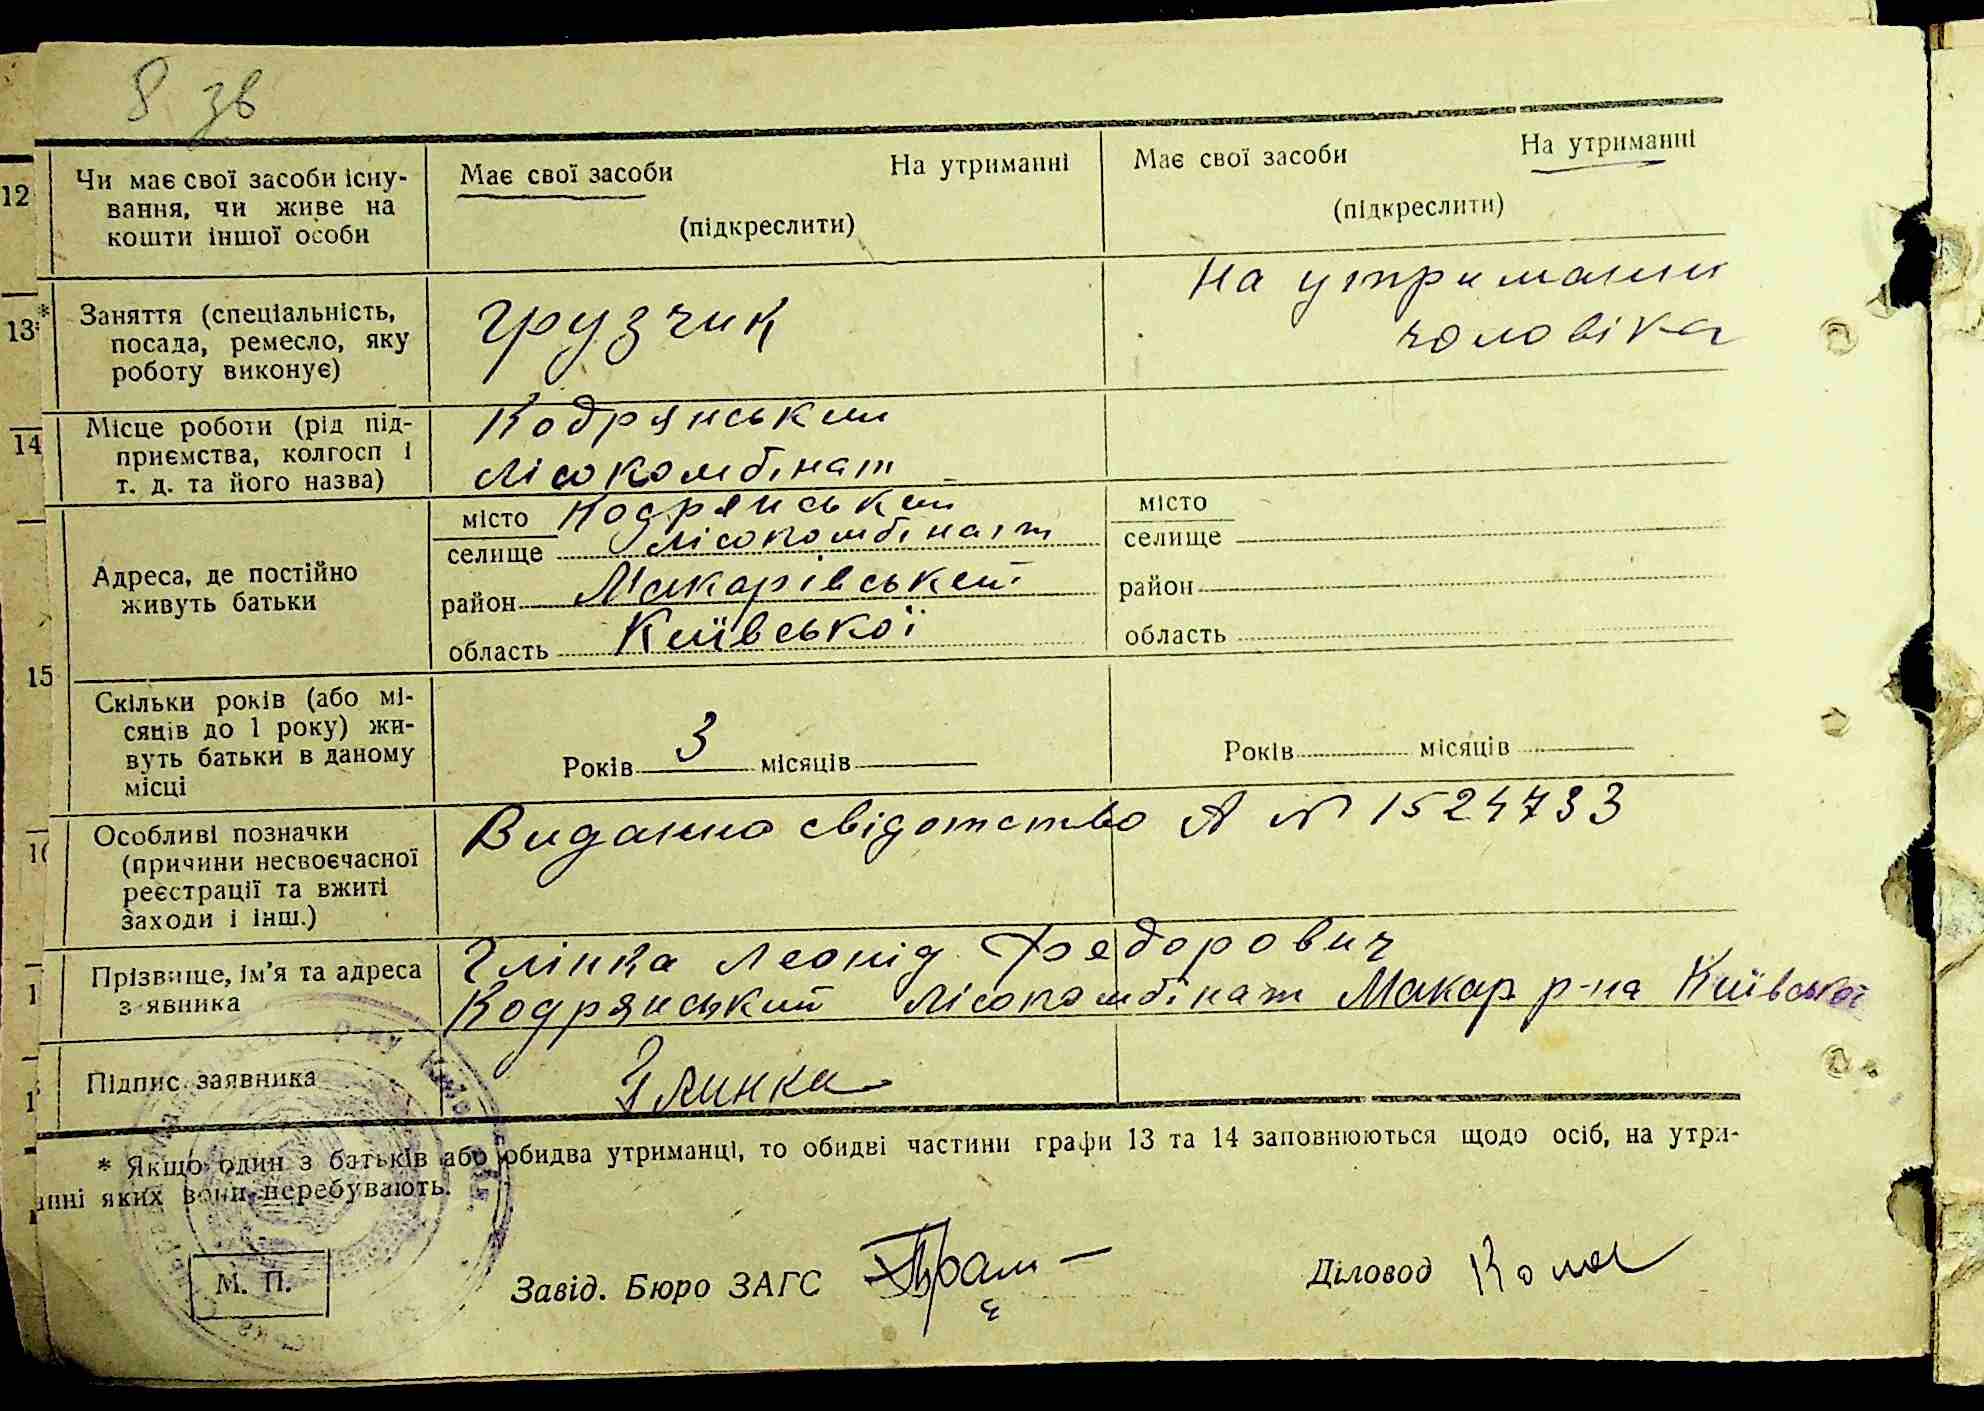 8 зв
12 Чи має свої засоби існу-
вання, чи живе на
кошти іншої особи
Має свої засоби На утриманні
(підкреслити)
Має свої засоби На утриманні
(підкреслити)
13* Заняття (спеціальність,
посада, ремесло, яку
роботу виконує)
грузчик
на утриманни
чоловіка
14 Місце роботи (рід під-
приємства, колгосп і
т. д. та його назва)
Кодрянський
лісокомбінат
15
Адреса, де постійно
живуть батьки
місто Кодрянський
селище лісокомбінат
район Макарівський
область Київської
місто
селище
район
область
Скільки років (або мі-
сяців до 1 року) жи-
вуть батьки в даному
місці
Років 3 місяців
Років місяців
Особливі позначки
(причини несвоєчасної
реєстрації та вжиті
заходи і інш.)
Виданно свідотство А № 1524733
Прізвище, ім'я та адреса
заявника
Глінка Леонід Федорович
Кодрянський лісокомбінат Макар р-на Київської
Підпис заявника
Глинка
* Якщо один з батьків або обидва утриманці, то обидві частини графи 13 та 14 заповнюються щодо осіб, на утри-
анні яких вони перебувають.
М. П.
Завід. Бюро ЗАГС
Діловод